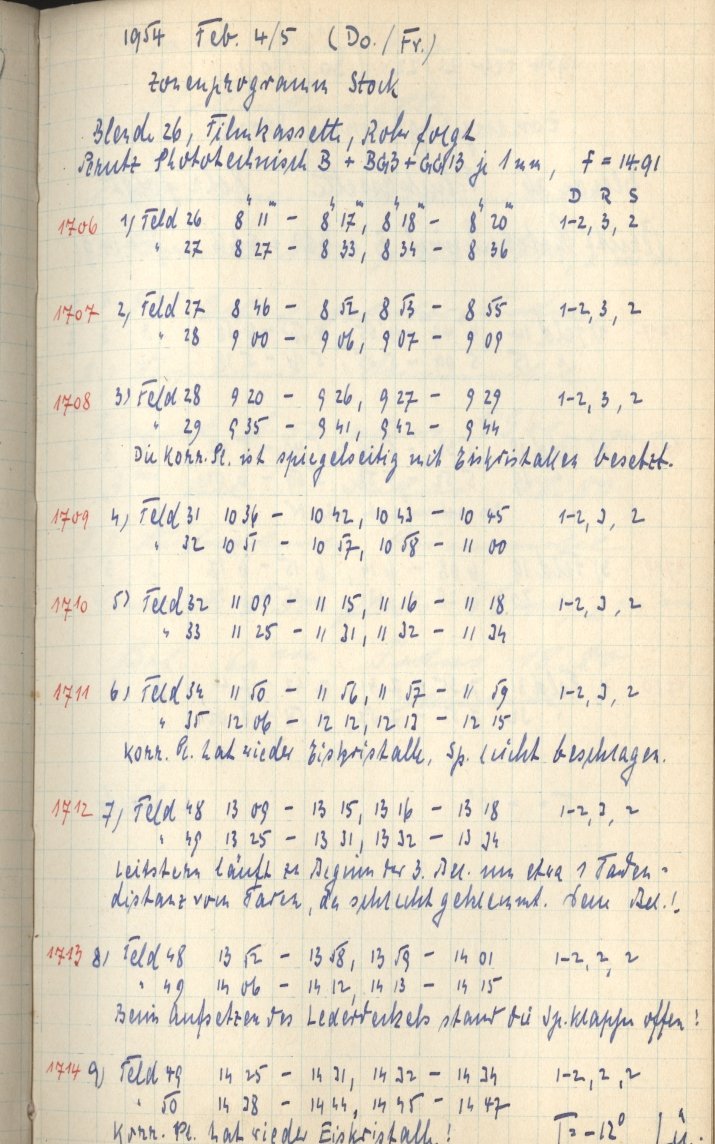 1954 Feb. 4/5 (Do./Fr.)
Zonenprogramm Stock
Blende 26, Filmkassette, Rohr folgt
Perutz Phototechnisch B + BG3 + GG13 je 1 mm, f = 14.91
D R S
1706 1) Feld 26 8h 11m - 8h 17m, 8h 18m - 8h 20m 1-2, 3, 2
" 27 8 27 - 8 33, 8 34 - 8 36
1707 2) Feld 27 8 46 - 8 52, 8 53 - 8 55 1-2, 3, 2
" 28 9 00 - 9 06, 9 07 - 9 09
1708 3) Feld 28 9 20 - 9 26, 9 27 - 9 29 1-2, 3, 2
" 29 9 35 - 9 41, 9 42 - 9 44
Die Korr. Pl. ist spiegelseitig mit Eiskristallen besetzt.
1709 4) Feld 31 10 36 - 10 42, 10 43 - 10 45 1-2, 3, 2
" 32 10 51 - 10 57, 10 58 - 11 00
1710 5) Feld 32 11 09 - 11 15, 11 16 - 11 18 1-2, 3, 2
" 33 11 25 - 11 31, 11 32 - 11 34
1711 6) Feld 34 11 50 - 11 56, 11 57 - 11 59 1-2, 3, 2
" 35 12 06 - 12 12, 12 13 - 12 15
Korr. Pl. hat wieder Eiskristalle, Sp. leicht beschlagen.
1712 7) Feld 48 13 09 - 13 15, 13 16 - 13 18 1-2, 3, 2
" 49 13 25 - 13 31, 13 32 - 13 34
Leitstern läuft zu Beginn der 3. Bel. um etwa 1 Faden-
distanz vom Faden, da schlecht geklemmt. Neue Bel.!
1713 8) Feld 48 13 52 - 13 58, 13 59 - 14 01 1-2, 2, 2
" 49 14 06 - 14 12, 14 13 - 14 15
Beim Aufsetzen des Lederdeckels stand die Sp. Klappe offen!
1714 9) Feld 49 14 25 - 14 31, 14 32 - 14 34 1-2, 2, 2
" 50 14 38 - 14 44, 14 45 - 14 47
Korr. Pl. hat wieder Eiskristalle! T = -12°